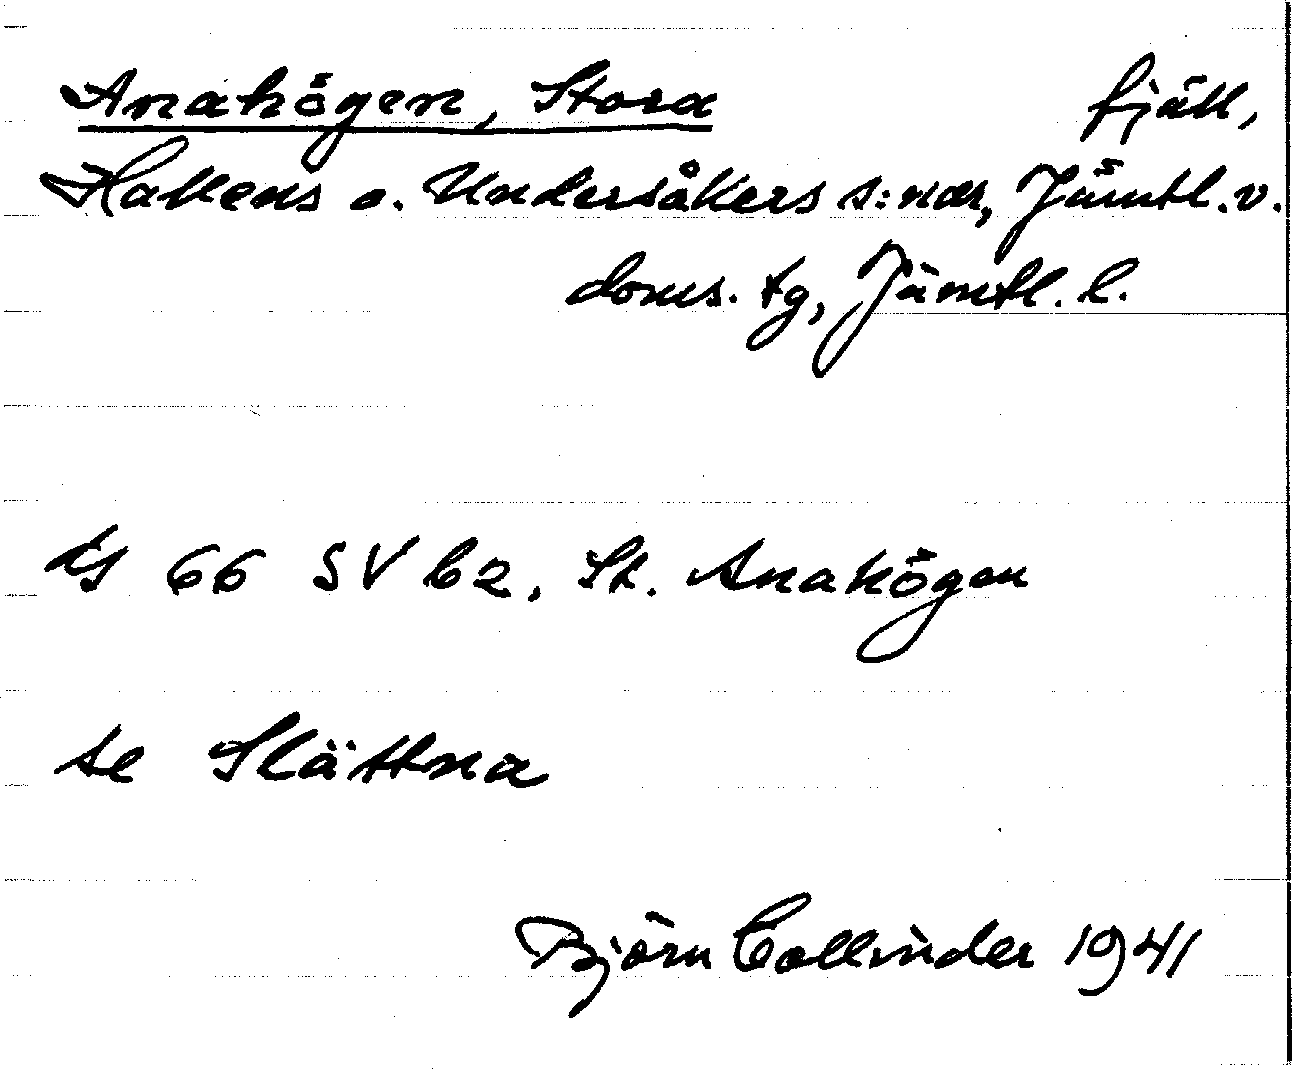 Anahögen, Stora fjäll,
Hallens o. Undersåkers s:ndr, Jämtl. v.
doms. tg, Jämtl. l.
66 SV b2, St. Anahögen
se Slåttna
Björn Collinder 1941